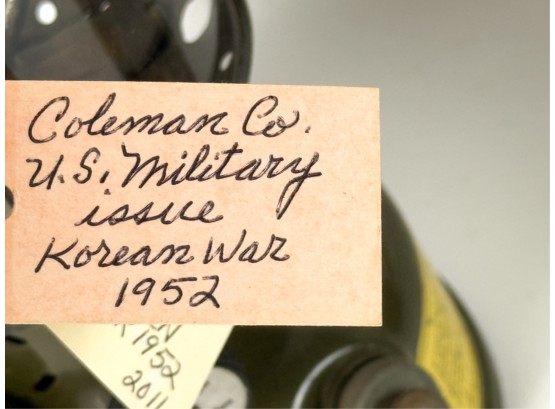 Coleman Co.
U.S. Military
issue
Korean War
1952
1952
2011